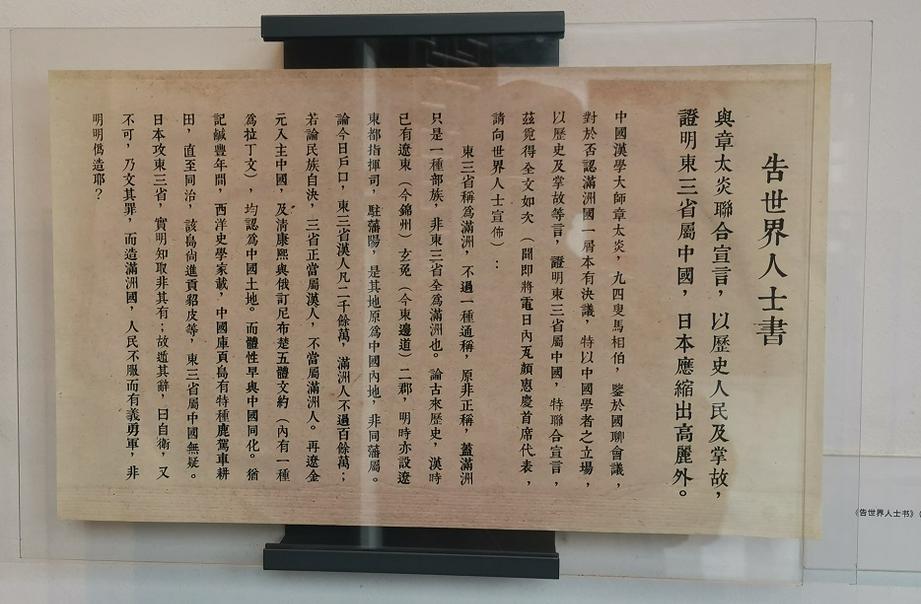 告世界人士書
與章太炎聯合宣言，以歷史人民及掌故，
證明東三省屬中國，日本應縮出高麗外。
中國漢學大師章太炎，九四叟馬相伯，鑒於國聯會議，
對於否認滿洲國一層本有決議，特以中國學者之立場，
以歷史及掌故等言，證明東三省屬中國，特聯合宣言，
茲覓得全文如次（聞即將電日內瓦顏惠慶首席代表，
請向世界人士宣佈）：
東三省稱為滿洲，不過一種通稱，原非正稱，蓋滿洲
只是一種部族，非東三省全為滿洲也。論古來歷史，漢時
已有遼東（今錦州）玄菟（今東邊道）二郡，明時亦設遼
東都指揮司，駐藩陽，是其地原為中國內地，非同藩屬。
論今日戶口，東三省漢人凡二千餘萬，滿洲人不過百餘萬；
若論民族自決，三省正當屬漢人，不當屬滿洲人。再遼金
元入主中國，及清康熙與俄訂尼布楚五體文約（內有一種
為拉丁文），均認為中國土地。而體性早與中國同化。猶
記咸豐年間，西洋史學家載，中國庫頁島有特種鹿駕車耕
田，直至同治，該島尚進貢貂皮等，東三省屬中國無疑。
日本攻東三省，實明知取非其有；故遁其辭，曰自衛，又
不可，乃文其罪，而造滿洲國，人民不服而有義勇軍，非
明明偽造耶？
《告世界人士书》（